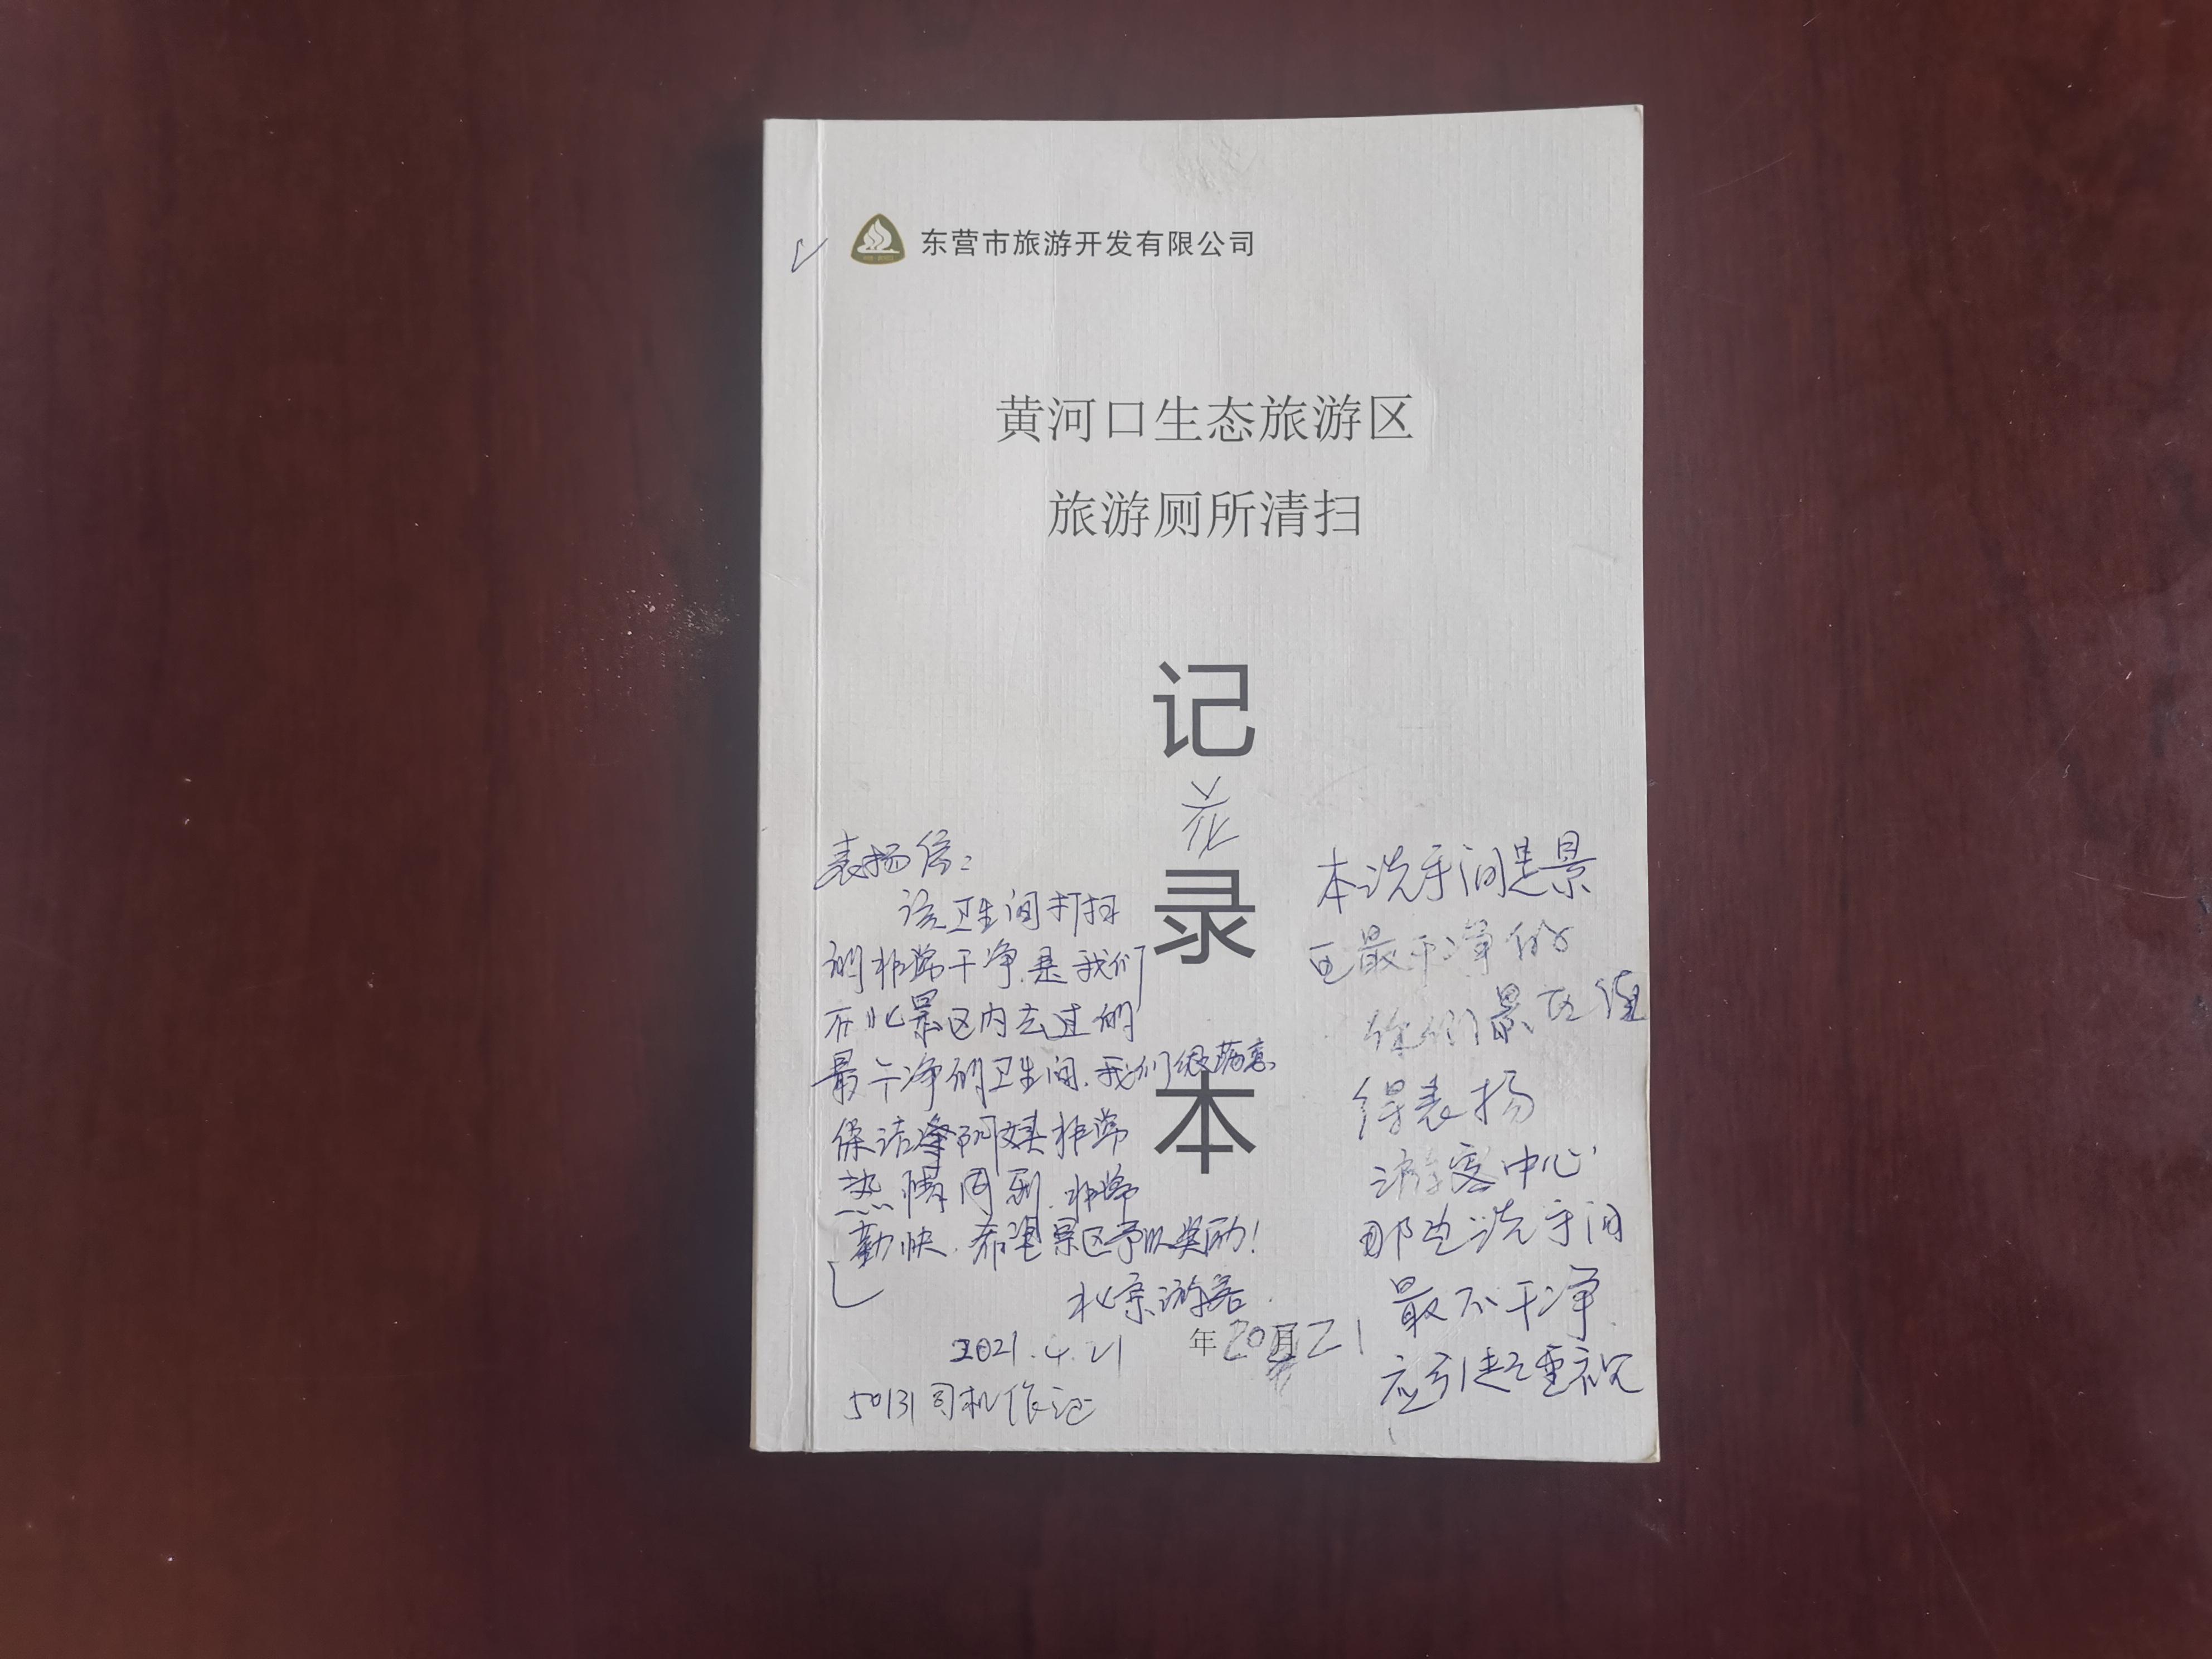 东营市旅游开发有限公司
黄河口生态旅游区
旅游厕所清扫
记
录
本
表扬信：
该卫生间打扫
的非常干净.是我们
在此景区内去过的
最干净的卫生间.我们很满意
保洁阿姨非常
热情周到.非常
勤快.希望景区予以奖励！
北京游客.
2021.4.21
50131司机作证
年20月21
本洗手间是景
区最干净的
你们景区值
得表扬
游客中心
那边洗手间
最不干净
应引起重视